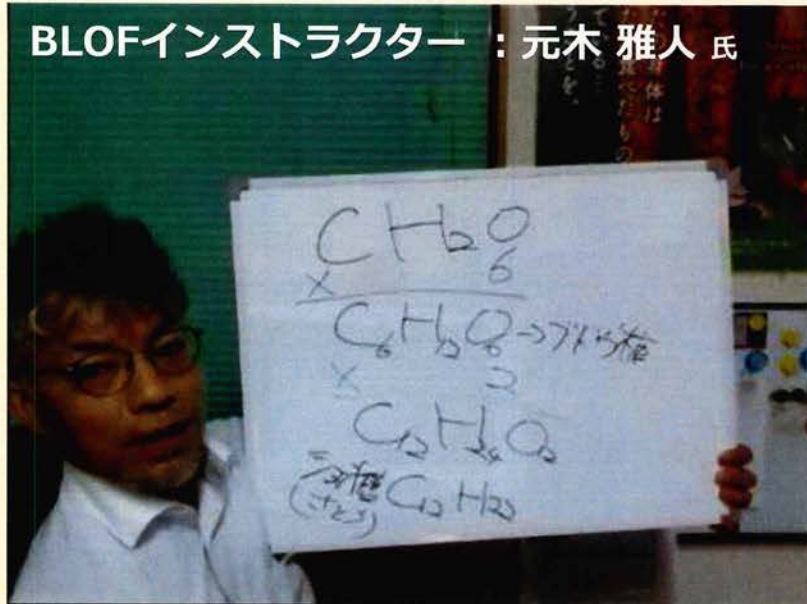 BLOFインストラクター ：元木 雅人 氏
体は
べたもの
CH₂O
× 6
C₆H₁₂O₆→ブドウ糖
× 2
C₁₂H₂₄O₁₂
ショ糖 C₁₂H₂₂
(さとう)